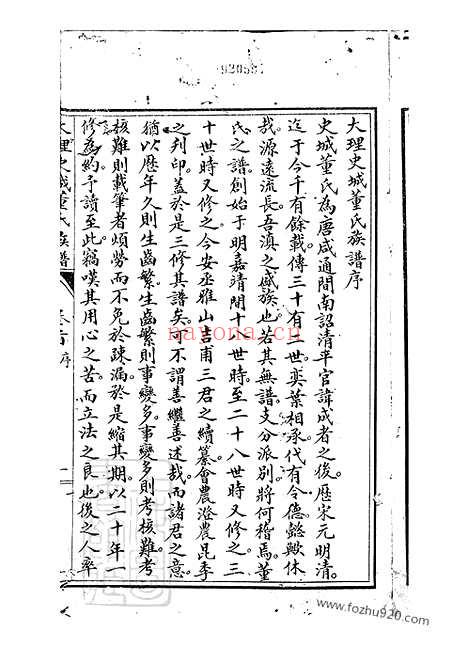 920587
大理史城董氏族譜序
史城董氏為唐咸通間南詔清平官諱成者之後歷宋元明清
迄于今千有餘載傳三十有一世奕葉相承代有令德懿歟休
哉源遠流長吾滇之盛族也若其無譜支分派別將何稽焉董
氏之譜創始于明嘉靖間十八世時至二十八世時又修之三
十世時又修之今安丞雅山吉甫三君之續纂會農澄農昆季
之刋印蓋於是三修其譜矣可不謂善繼善述哉而諸君之意
猶以歷年久則生齒繁生齒繁則事變多事變多則考核難考
核難則載筆者煩勞而不免於疎漏於是縮其期以二十年一
修為約予讀至此竊嘆其用心之苦而立法之良也後之人率
大理史城董氏族譜
卷首
序
一
nayona.cn
www.fozhu920.com